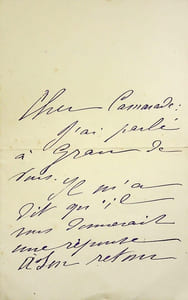 Cher Camarade:
J'ai parlé
à Grau de
vous. Il m'a
dit qu'il
vous donnerait
une réponse
à son retour